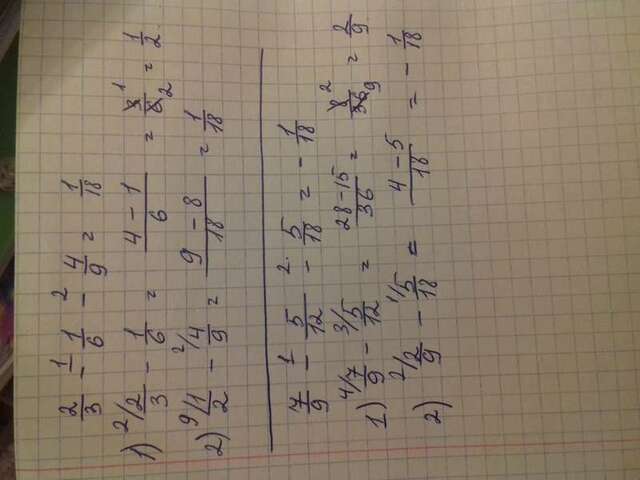 2/3 -¹ 1/6 -² 4/9 = 1/18
1) ²/2/3 - 1/6 = (4 - 1)/6 = 3¹/6₂ = 1/2
2) ⁹/1/2 - ²/4/9 = (9 - 8)/18 = 1/18
7/9 -¹ 5/12 -²· 5/18 = - 1/18
1) ⁴/7/9 - ³/5/12 = (28 - 15)/36 = 8²/36₉ = 2/9
2) ²/2/9 - ¹/5/18 = (4 - 5)/18 = - 1/18